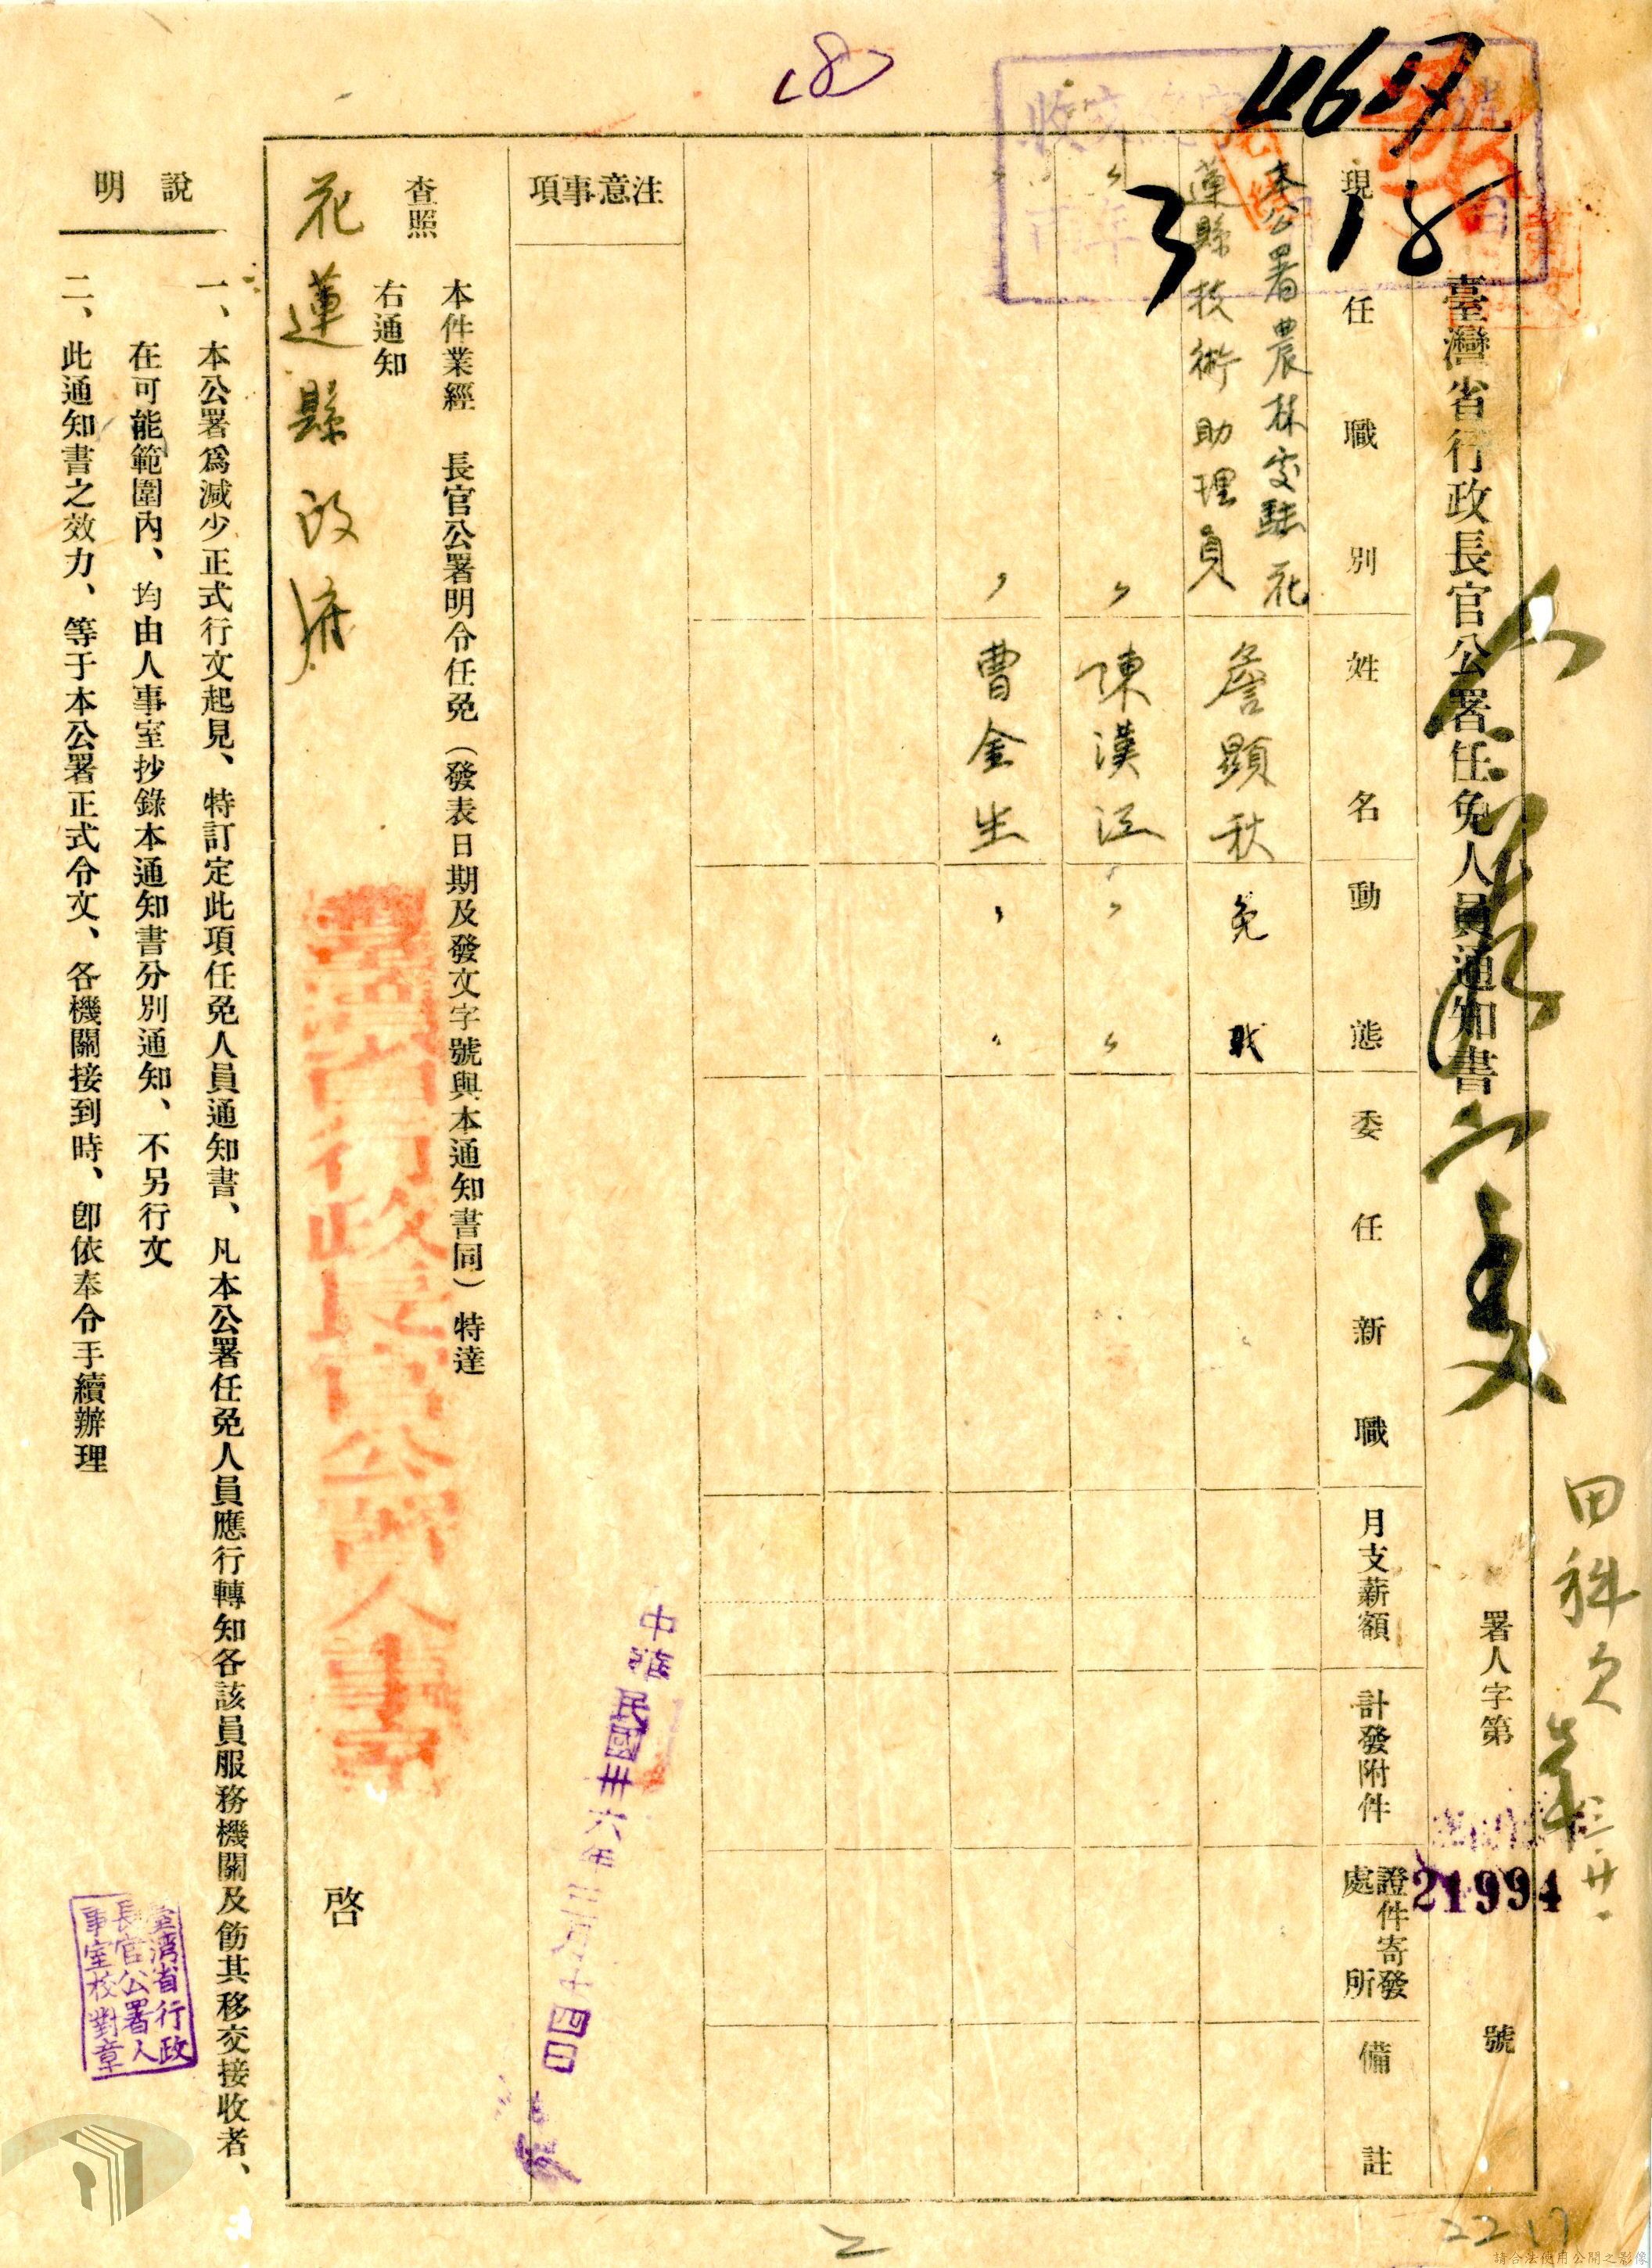 臺灣省行政長官公署任免人員通知書
署人字第
21994
號
現任職別
姓名
動態
委任新職
月支薪額
計發附件
證件寄發
處所
備註
本公署農林處駐花
蓮縣技術助理員
詹顯秋
免職
〃
陳漢江
〃
〃
〃
曹金生
〃
〃
注意事項
中華民國卅六年三月十四日
本件業經 長官公署明令任免（發表日期及發文字號與本通知書同）特達
查照
右通知
花蓮縣政府
啓
臺灣省行政長官公署人事室
說明
一、本公署爲減少正式行文起見、特訂定此項任免人員通知書、凡本公署任免人員應行轉知各該員服務機關及飭其移交接收者、
在可能範圍內、均由人事室抄錄本通知書分別通知、不另行文
二、此通知書之效力、等于本公署正式令文、各機關接到時、卽依奉令手續辦理
臺灣省行政
長官公署人
事室校對章
4657
3 18
田科
2217
請合法使用公開之影像